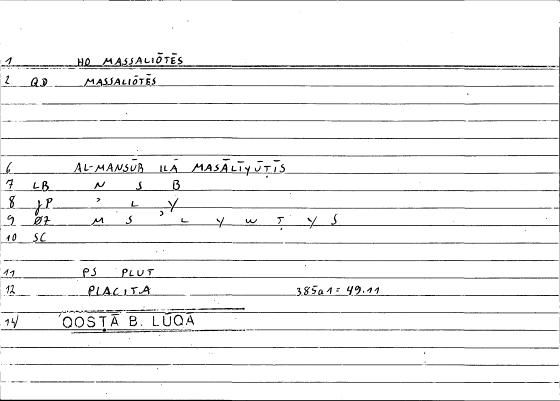 1 HO MASSALIŌTĒS
2 QD MASSALIŌTĒS
6 AL-MANSŪB ILĀ MASĀLIYŪṬĪS
7 LB N S B
8 JP ' L Y
9 ØZ M S ' L Y W Ṭ Y S
10 SC
11 PS PLUT
12 PLACITA 385a1 = 49.11
14 QOSṬĀ B. LŪQĀ